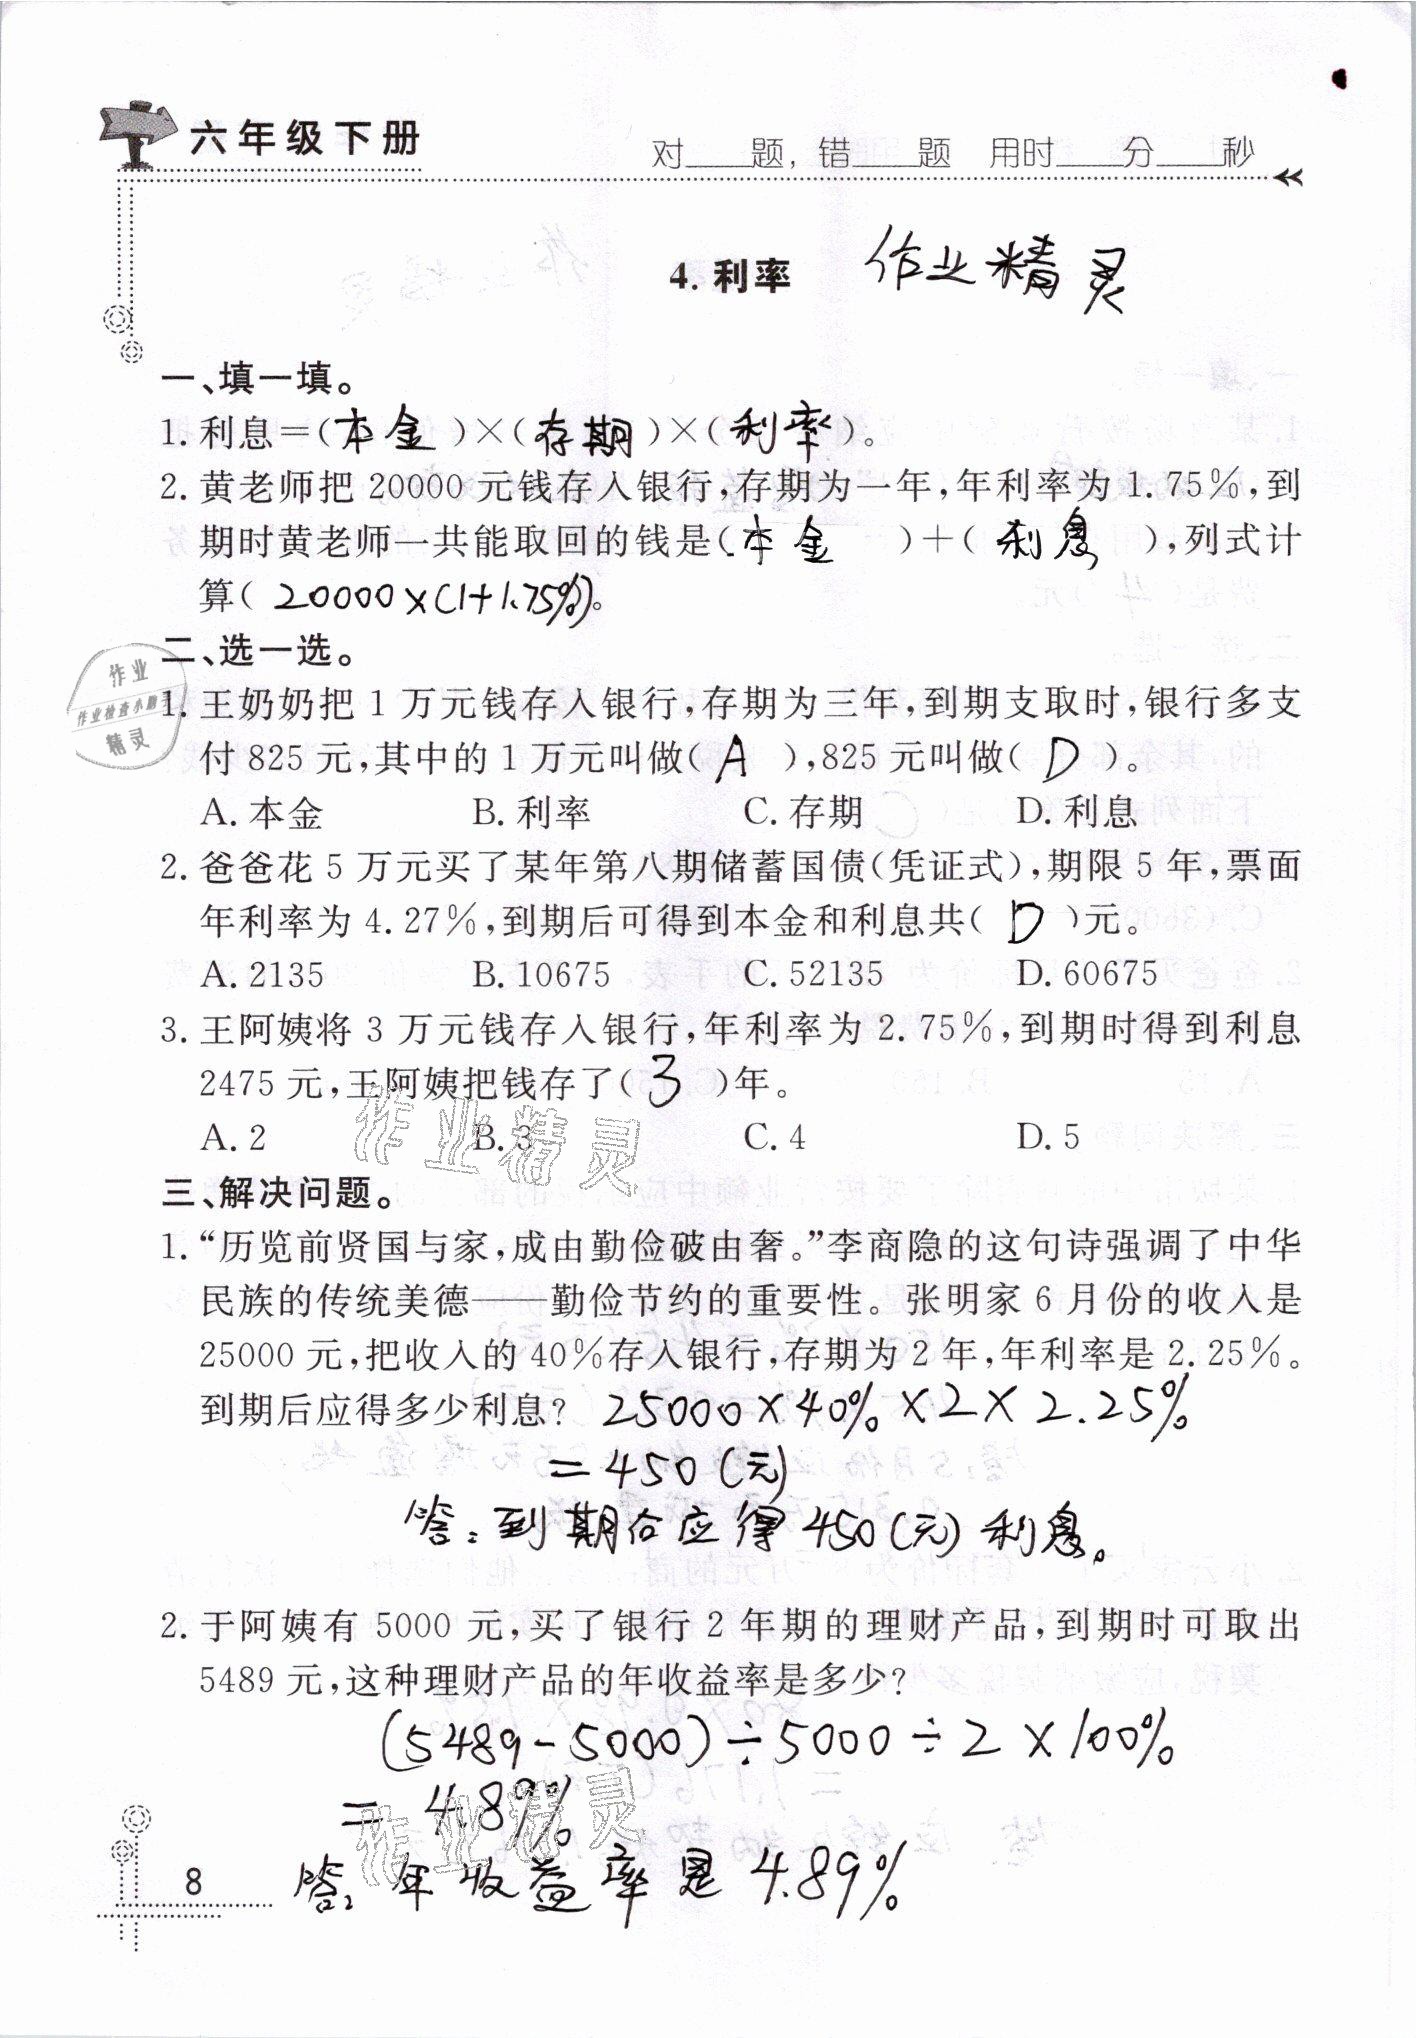 六年级下册
对____题,错____题 用时____分____秒
4. 利率 作业精灵
一、填一填。
1. 利息=(本金)×(存期)×(利率)。
2. 黄老师把 20000 元钱存入银行,存期为一年,年利率为 1.75%,到
期时黄老师一共能取回的钱是(本金)+(利息),列式计
算(20000×(1+1.75%))。
二、选一选。
作业
作业检查小助手
精灵
1. 王奶奶把 1 万元钱存入银行,存期为三年,到期支取时,银行多支
付 825 元,其中的 1 万元叫做( A ),825 元叫做( D )。
A. 本金 B. 利率 C. 存期 D. 利息
2. 爸爸花 5 万元买了某年第八期储蓄国债(凭证式),期限 5 年,票面
年利率为 4.27%,到期后可得到本金和利息共( D )元。
A. 2135 B. 10675 C. 52135 D. 60675
3. 王阿姨将 3 万元钱存入银行,年利率为 2.75%,到期时得到利息
2475 元,王阿姨把钱存了( 3 )年。
作业精灵
A. 2 B. 3 C. 4 D. 5
三、解决问题。
1. “历览前贤国与家,成由勤俭破由奢。”李商隐的这句诗强调了中华
民族的传统美德——勤俭节约的重要性。张明家 6 月份的收入是
25000 元,把收入的 40%存入银行,存期为 2 年,年利率是 2.25%。
到期后应得多少利息? 25000×40%×2×2.25%
=450(元)
答:到期后应得450(元)利息。
2. 于阿姨有 5000 元,买了银行 2 年期的理财产品,到期时可取出
5489 元,这种理财产品的年收益率是多少?
(5489-5000)÷5000÷2×100%
=4.89%
作业精灵
答:年收益率是4.89%
8